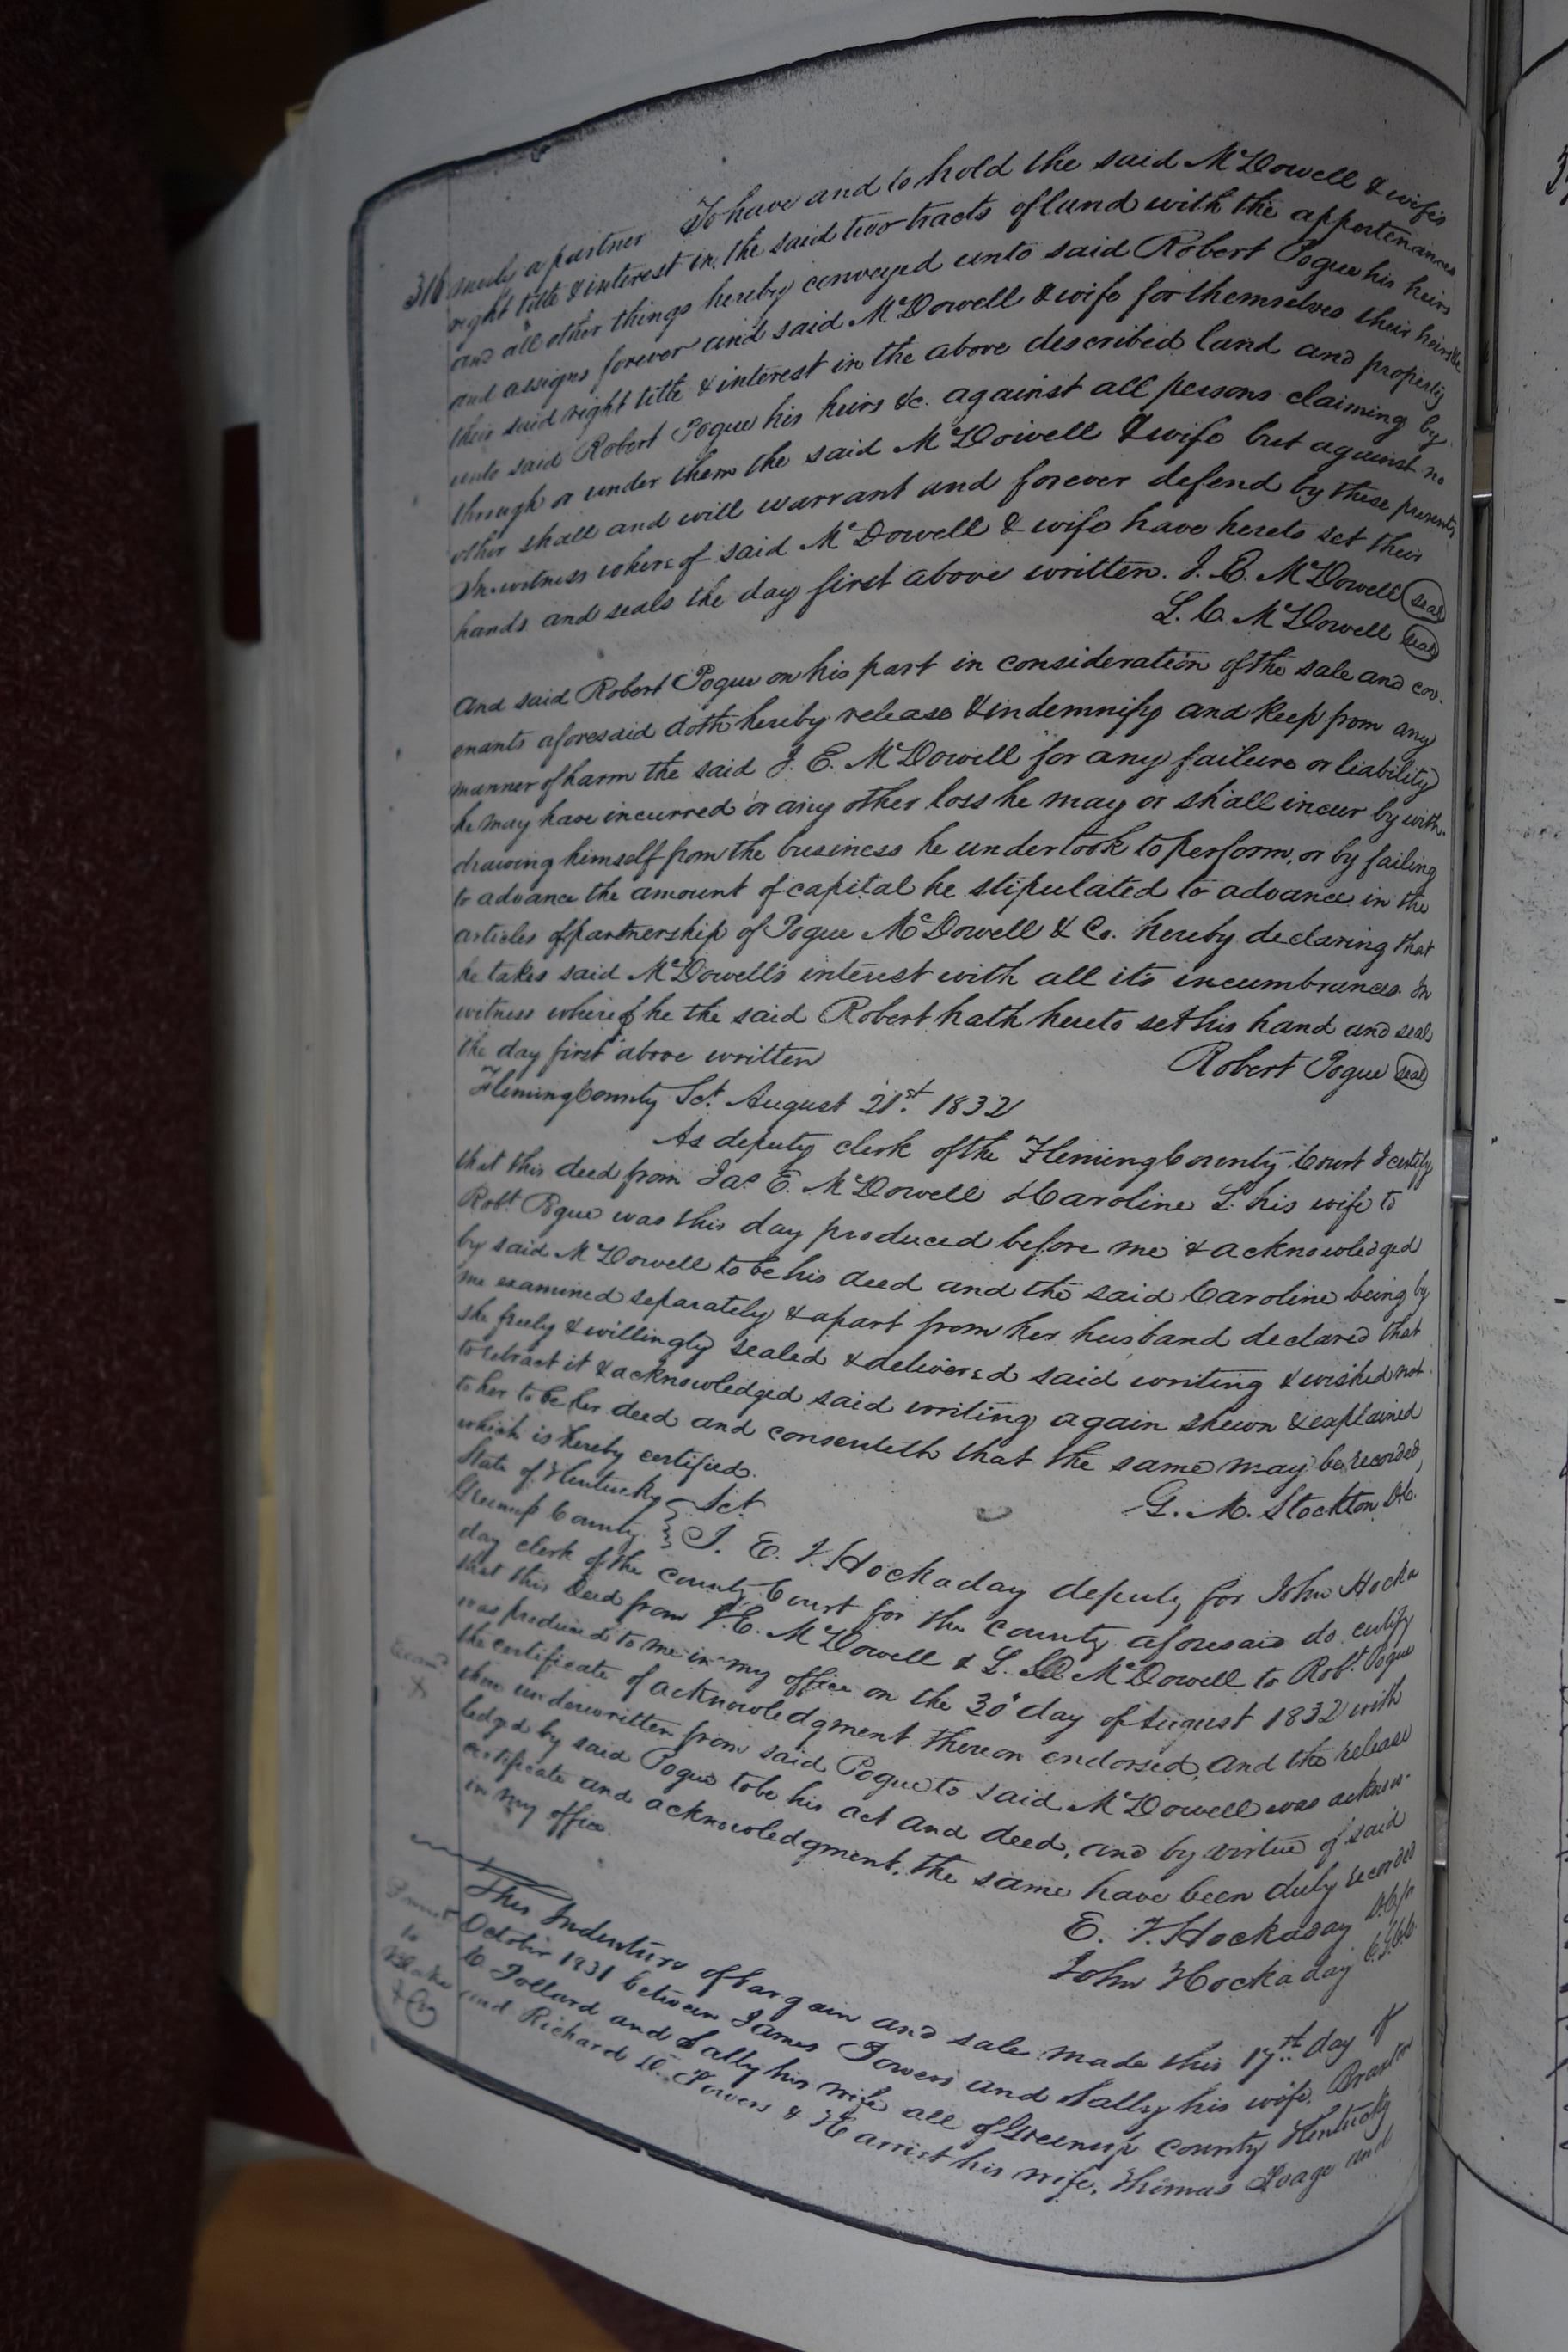 316 such a partner To have and to hold the said McDowell & wife's
right title & interest in the said two tracts of land with the appertenances
and all other things hereby conveyed unto said Robert Pogue his heirs
and assigns forever and said McDowell & wife for themselves their heirs &c
their said right title & interest in the above described land and property
unto said Robert Pogue his heirs &c. against all persons claiming by
through or under them the said McDowell & wife but against no
other shall and will warrant and forever defend by these presents
In witness whereof said McDowell & wife have hereto set their
hands and seals the day first above written. J. E. McDowell seal
L. C. McDowell seal
And said Robert Pogue on his part in consideration of the sale and cov-
enants aforesaid doth hereby release & indemnify and keep from any
manner of harm the said J. E. McDowell for any failure or liability
he may have incurred or any other loss he may or shall incur by with-
drawing himself from the business he undertook to perform, or by failing
to advance the amount of capital he stipulated to advance in the
articles of partnership of Pogue McDowell & Co. hereby declaring that
he takes said McDowell's interest with all its incumbrances In
witness whereof he the said Robert hath hereto set his hand and seal
the day first above written Robert Pogue seal
Fleming County Sct. August 21st. 1832
As deputy clerk of the Fleming County Court I certify
that this deed from Jas E. McDowell & Caroline L. his wife to
Robt. Pogue was this day produced before me & acknowledged
by said McDowell to be his deed and the said Caroline being by
me examined separately & apart from her husband declared that
she freely & willingly sealed & delivered said writing & wished not
to retract it & acknowledged said writing again shewn & explained
to her to be her deed and consenteth that the same may be recorded,
which is hereby certified. G. M. Stockton D.C.
State of Kentucky Sct
Greenup County } I. E. F. Hockaday deputy for John Hocka
day clerk of the county Court for the county aforesaid do certify
that this Deed from J. E. McDowell & L. C. McDowell to Robt. Pogue
was produced to me in my office on the 30 day of August 1832 with
the certificate of acknowledgment thereon endorsed, and the release
thereunderwritten from said Pogue to said McDowell was acknow-
ledged by said Pogue to be his act and deed, and by virtue of said
certificate and acknowledgment, the same have been duly recorded
in my office.
E. F. Hockaday
John Hockaday
Examd
X
This Indenture of bargain and sale made this 17th day of
October 1831 between James Powers and Sally his wife, Braxton
C. Pollard and Sally his wife all of Greenup County Kentucky
and Richard D. Powers & Harriet his wife, Thomas Poage and
to